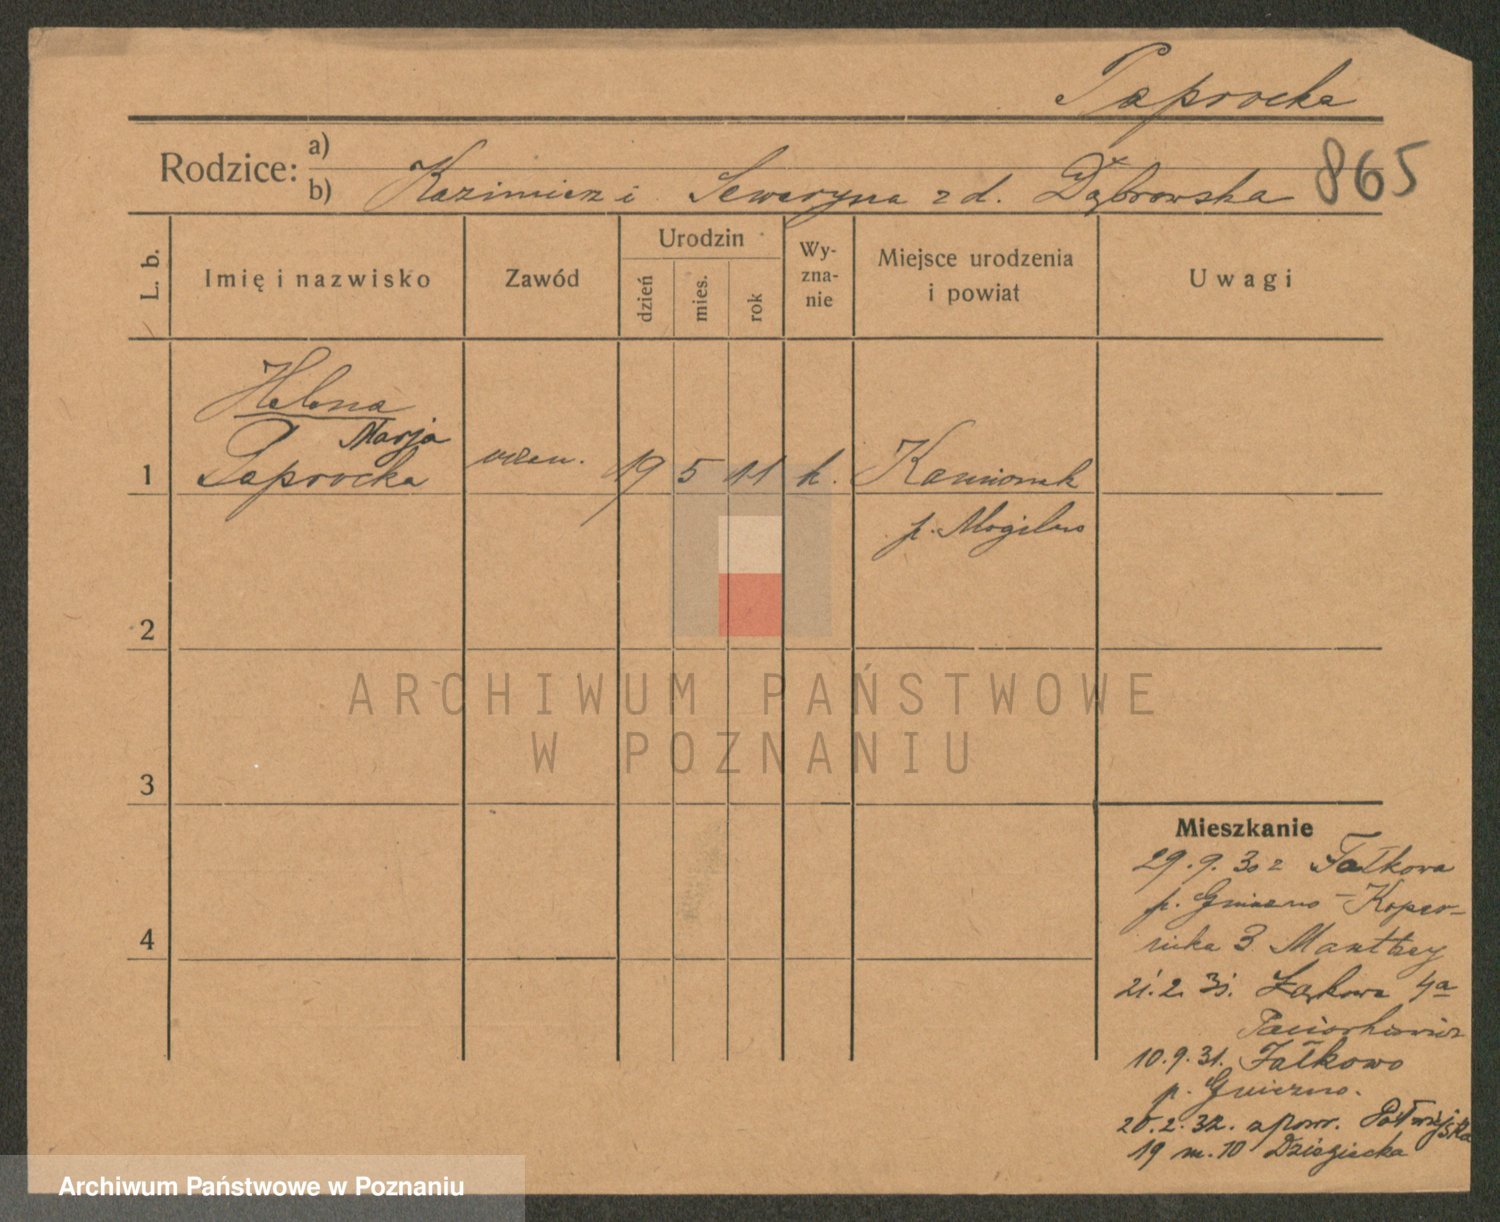 Paprocka
865
Rodzice: a)
b) Kazimierz i Seweryna z d. Dąbrowska
L. b.
Imię i nazwisko
Zawód
Urodzin
dzień
mies.
rok
Wy-
zna-
nie
Miejsce urodzenia
i powiat
Uwagi
Helena
Marja
1 Paprocka uczen. 19 5 11 k. Kamionek
p. Mogilno
2
3
4
ARCHIWUM PAŃSTWOWE
W POZNANIU
Mieszkanie
29.9.30 z Fałkowa
p. Gniezno - Koper-
nika 3 Manthey
21.2.31. Łąkowa 4a
Paciorkiewicz
10.9.31. Fałkowo
p. Gniezno.
20.2.32. z powr. Półwiejska
19 m. 10 Dzięgiecka
Archiwum Państwowe w Poznaniu